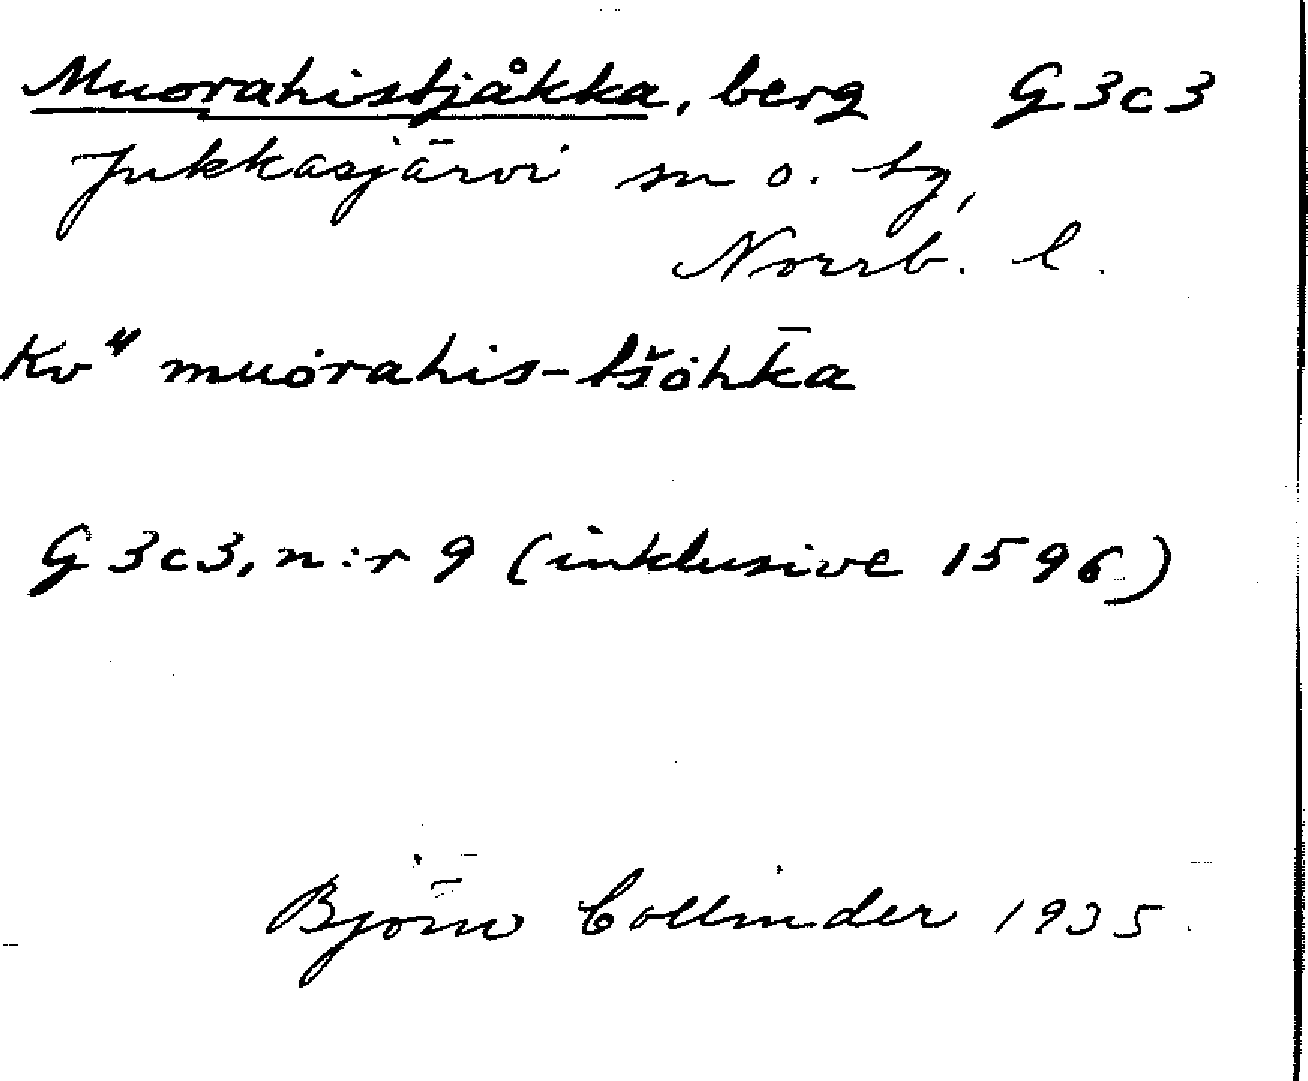 Muorahistjåkka, berg G3c3
Jukkasjärvi sn o. tg,
Norrb. l.
Kv" muȯrahis-tšȯhk̄a
G3c3, n:r 9 (inklusive 1596)
Björn Collinder 1935.